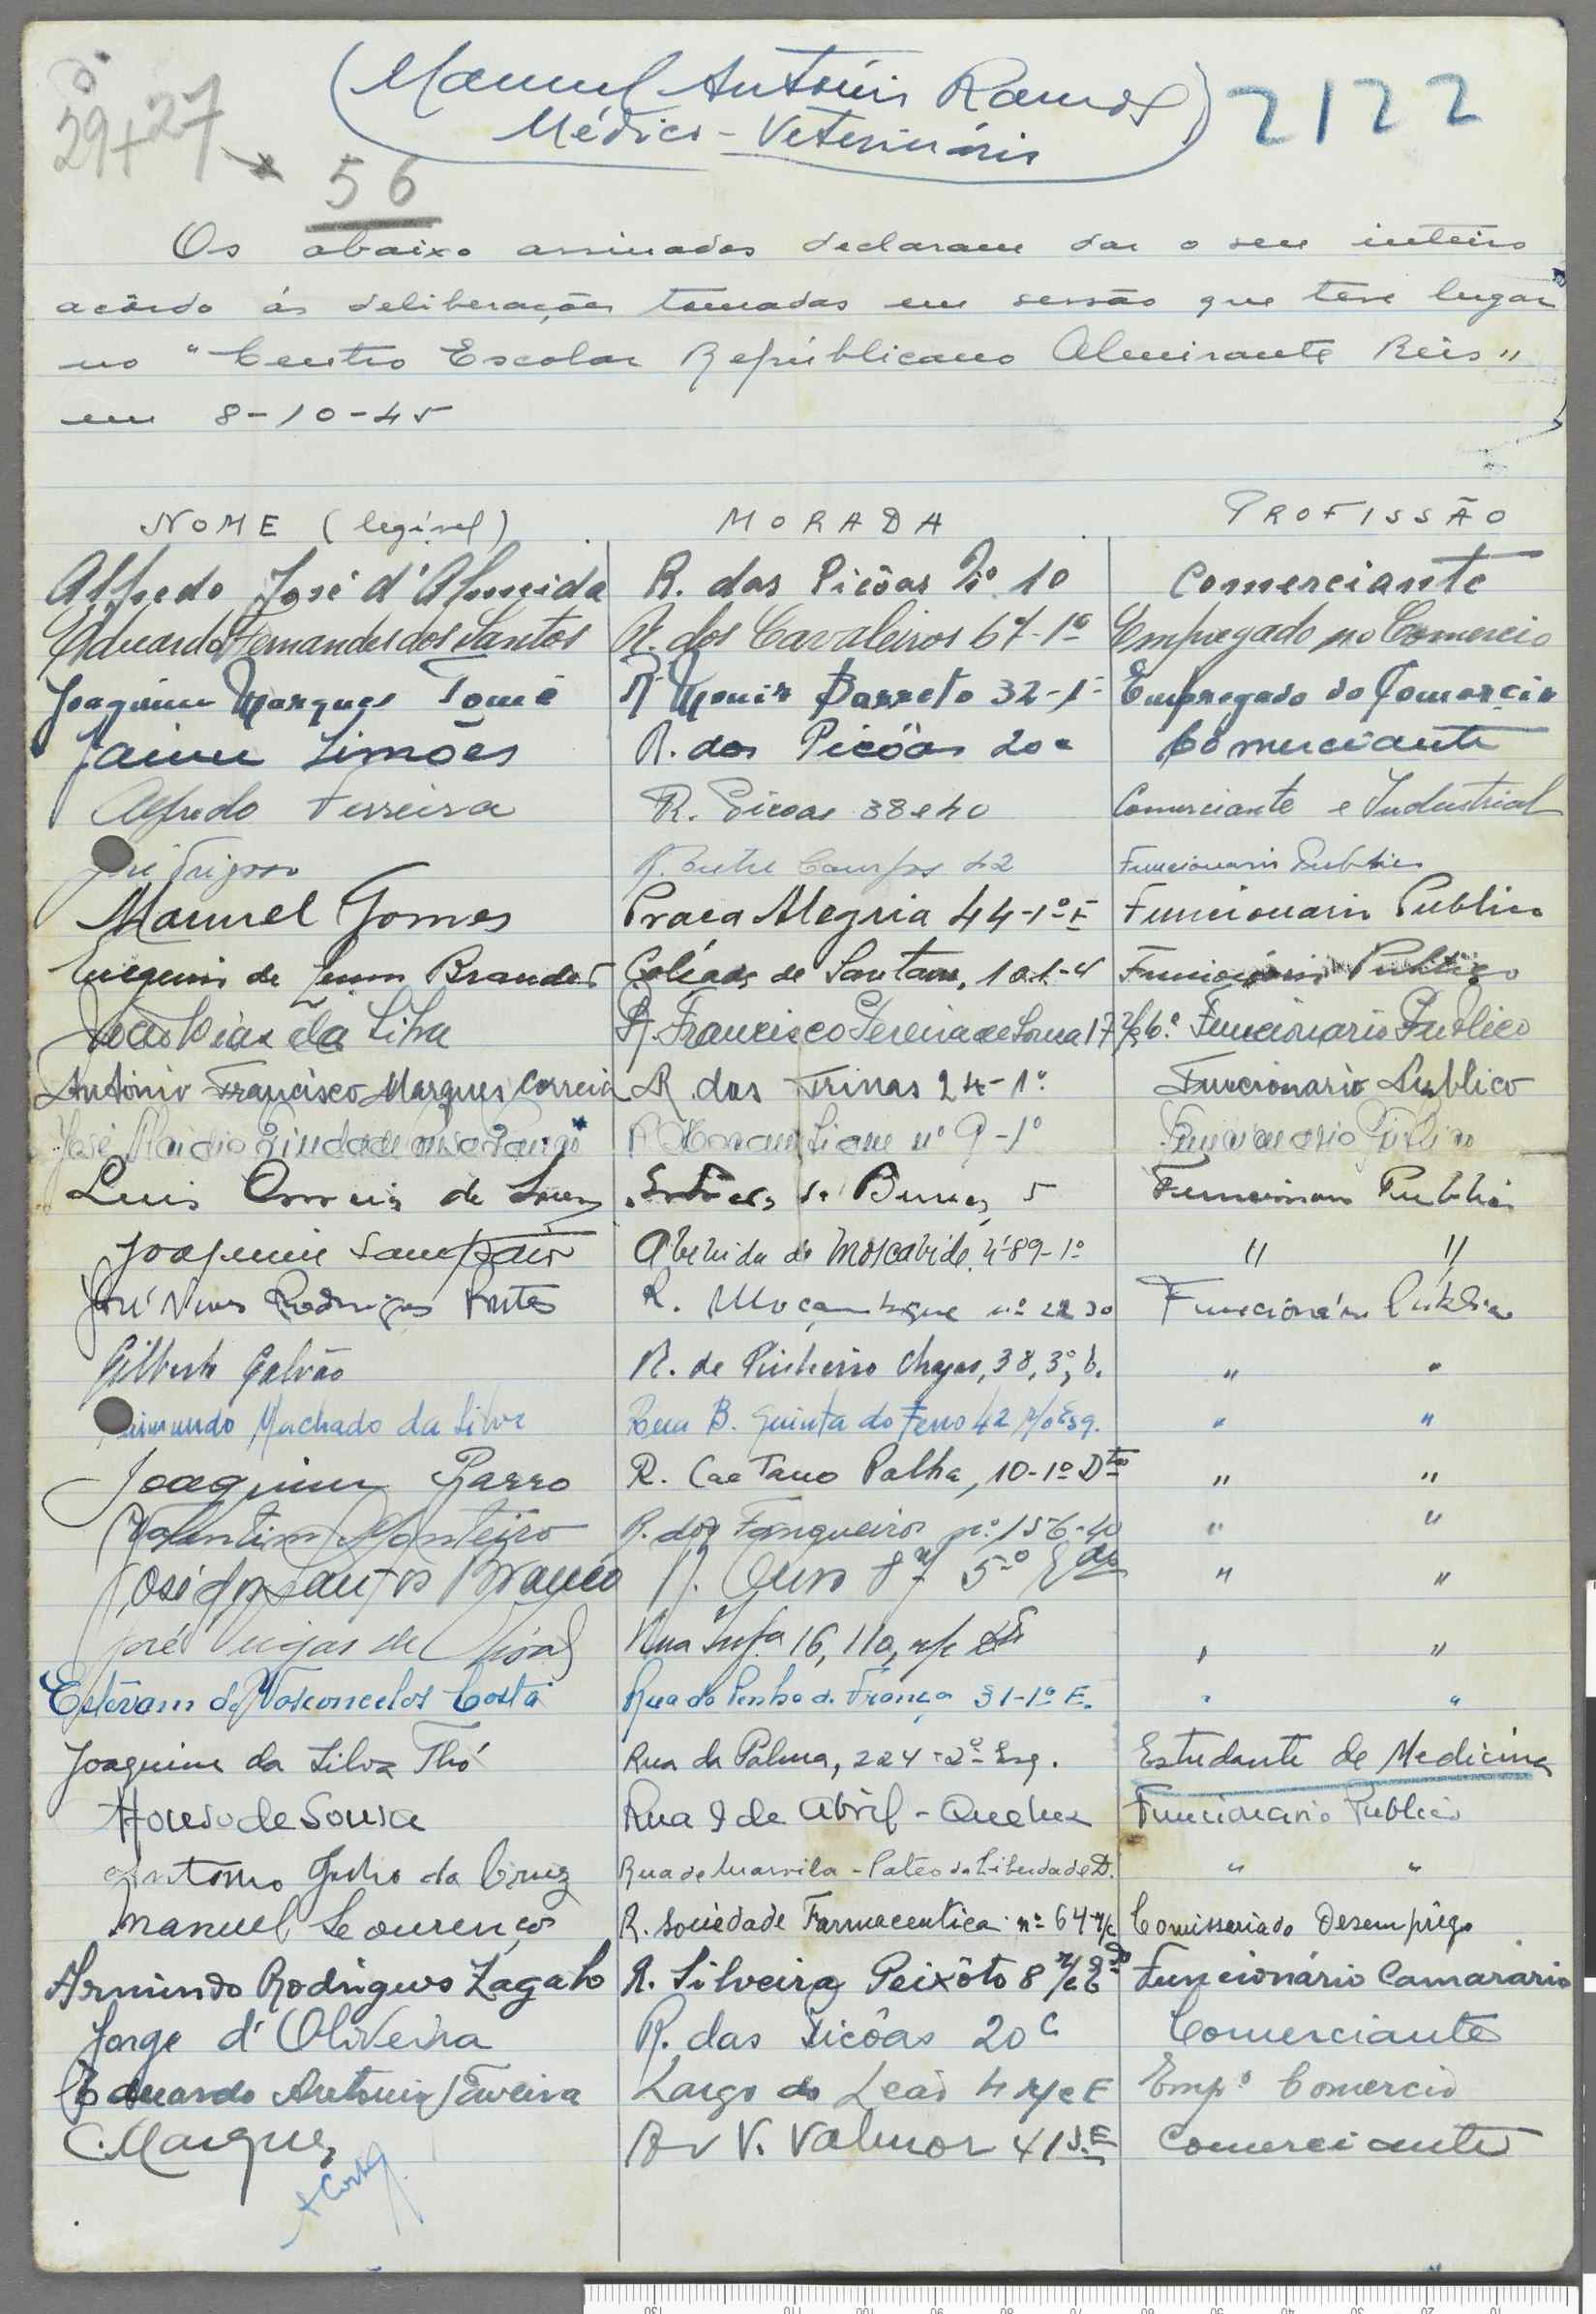 29+27
56
(Manuel António Ramos)
Médico-Veterinário
2122
Os abaixo assinados declaram dar o seu inteiro
acôrdo ás deliberações tomadas em sessão que teve lugar
no "Centro Escolar Repúblicano Almirante Reis"
em 8-10-45
NOME (legível) MORADA PROFISSÃO
Alfredo José d'Almeida R. das Picôas Nº 10 Comerciante
Eduardo Fernandes dos Santos R. dos Cavaleiros 67-1º Empregado no Comercio
Joaquim Marques Tomé R Moniz Barreto 32-1º Empregado do Comercio
Jaime Simões R. das Picôas 20 c Comerciante
Alfredo Ferreira R. Picoas 38 e 40 Comerciante e Industrial
José R. Entre Campos 42 Funcionario Publico
Manuel Gomes Praça Alegria 44-1º E Funcionario Publico
Eugenio de Brandão Calçada de Santana, 101-4 Funcionário Publico
João Dias da Silva R. Francisco Pereira de Sousa 17 Funcionario Publico
António Francisco Marques Correia R. das Trinas 24-1º Funcionario Publico
José nº 9-1º Funcionario Publico
Luis Correia de 5 Funcionario Publico
Joaquim Sampaio Avenida de Moscavide, 489-1º " "
José Nunes Rodrigues R. Moçambique nº 22 Funcionário Público
Gilberto Galvão R. de Pinheiro Chagas, 38, 3º, E. " "
Raimundo Machado da Silva Rua B. Quinta do Ferro 42 r/c Esq. " "
Joaquim Barro R. Caetano Palha, 10-1º Dto " "
Valentim Monteiro R. dos Fanqueiros nº 156-4º " "
José dos Santos Branco R. Ouro 5º " "
José Viegas de Rua 16, 110, r/c " "
Estêvam de Vasconcelos Costa Rua da Penha de França 31-1º E. " "
Joaquim da Silva Thó Rua da Palma, 224-2º Esq. Estudante de Medicina
Afonso de Sousa Rua 9 de Abril - Queluz Funcionario Publico
António Julho da Cruz Rua de Marvila - Pateo da Liberdade D. " "
Manuel Lourenço R. Sociedade Farmaceutica nº 64-r/c Comissariado Desemprêgo
Armindo Rodrigues Zagalo R. Silveira Peixôto 8 r/c Funcionário Camarario
Jorge d'Oliveira R. das Picôas 20 C Comerciante
Eduardo Antonio Taveira Largo do Leão 4 r/c E Empº Comercio
C. Marques Av V. Valmor 41 Comerciante